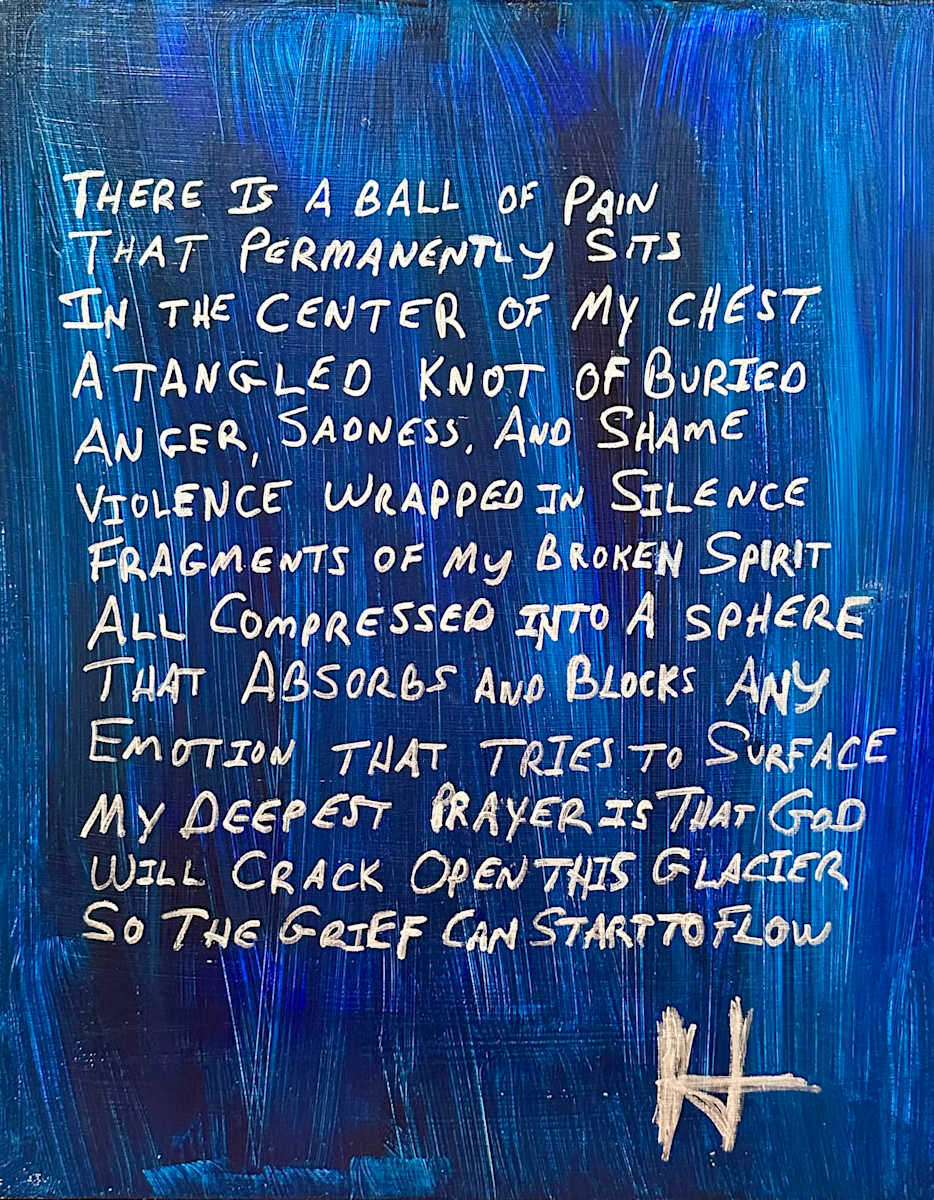 THERE IS A BALL OF PAIN
THAT PERMANENTLY SITS
IN THE CENTER OF MY CHEST
A TANGLED KNOT OF BURIED
ANGER, SADNESS, AND SHAME
VIOLENCE WRAPPED IN SILENCE
FRAGMENTS OF MY BROKEN SPIRIT
ALL COMPRESSED INTO A SPHERE
THAT ABSORBS AND BLOCKS ANY
EMOTION THAT TRIES TO SURFACE
MY DEEPEST PRAYER IS THAT GOD
WILL CRACK OPEN THIS GLACIER
SO THE GRIEF CAN START TO FLOW